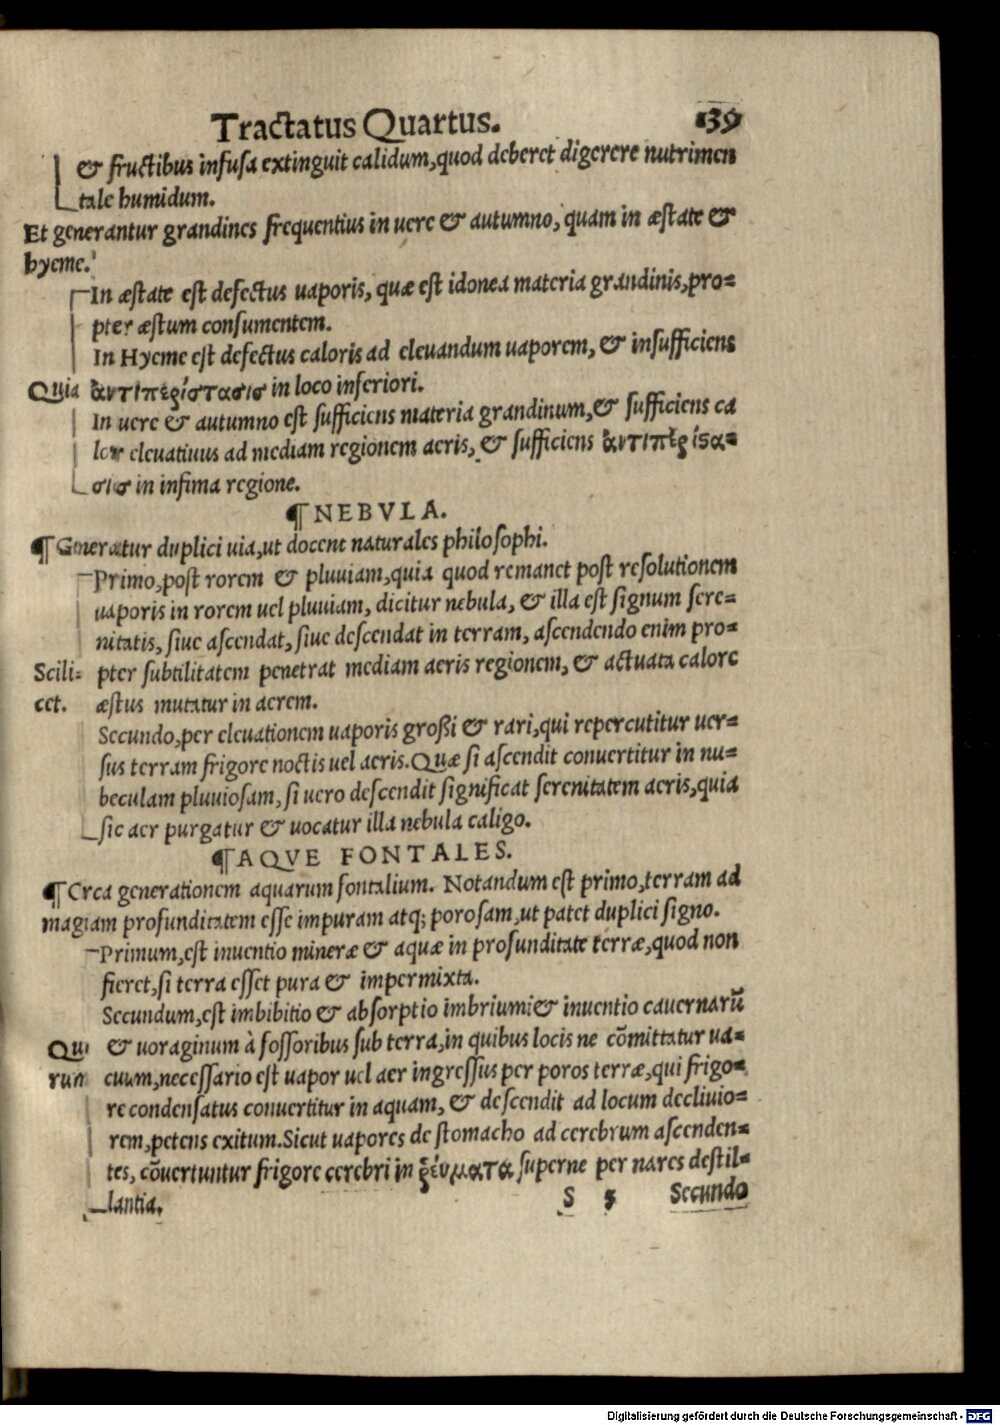 Tractatus Quartus. 139
& fructibus infusa extinguit calidum, quod deberet digerere nutrimen
tale humidum.
Et generantur grandines frequentius in uere & autumno, quam in æstate &
hyeme.
In æstate est defectus uaporis, quæ est idonea materia grandinis, pro=
pter æstum consumentem.
In Hyeme est defectus caloris ad eleuandum uaporem, & insufficiens
Quia ἀντιπερίστασις in loco inferiori.
In uere & autumno est sufficiens materia grandinum, & sufficiens ca
lor eleuatiuus ad mediam regionem aeris, & sufficiens ἀντιπερίϛα=
σις in infima regione.
¶NEBVLA.
¶ Generatur duplici uia, ut docent naturales philosophi.
Primo, post rorem & pluuiam, quia quod remanet post resolutionem
uaporis in rorem uel pluuiam, dicitur nebula, & illa est signum sere=
nitatis, siue ascendat, siue descendat in terram, ascendendo enim pro=
Scili= pter subtilitatem penetrat mediam aeris regionem, & actuata calore
cet. æstus mutatur in aerem.
Secundo, per eleuationem uaporis grossi & rari, qui repercutitur uer=
sus terram frigore noctis uel aeris. Quæ si ascendit conuertitur in nu=
beculam pluuiosam, si uero descendit significat serenitatem aeris, quia
sic aer purgatur & uocatur illa nebula caligo.
¶AQVE FONTALES.
¶ Crca generationem aquarum fontalium. Notandum est primo, terram ad
magiam profunditatem esse impuram atq; porosam, ut patet duplici signo.
Primum, est inuentio mineræ & aquæ in profunditate terræ, quod non
fieret, si terra esset pura & impermixta.
Secundum, est imbibitio & absorptio imbrium: & inuentio cauernarū
Quo & uoraginum à fossoribus sub terra, in quibus locis ne cōmittatur ua=
rum cuum, necessario est uapor uel aer ingressus per poros terræ, qui frigo=
re condensatus conuertitur in aquam, & descendit ad locum decliuio=
rem, petens exitum. Sicut uapores de stomacho ad cerebrum ascenden=
tes, cōuertuntur frigore cerebri in ῥεύματα superne per nares destil=
lantia.
S 5 Secundo
Digitalisierung gefördert durch die Deutsche Forschungsgemeinschaft - DFG